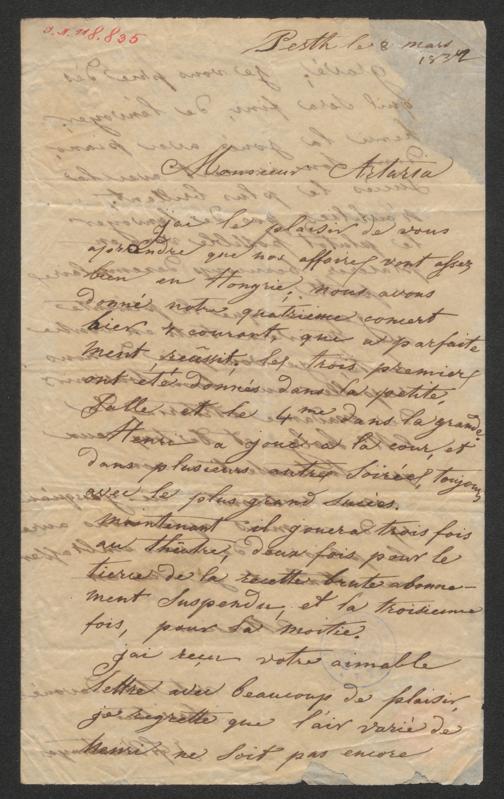 J.N. 118.835
Pesth le 8 mars
1842
Monsieur Artaria
j'ai le plaisir de vous
aprendre que nos affaires vont assez
bien en Hongrie; nous avons
donné notre quatrième concert
hier 7 courant, que a parfaite
ment réussit, les trois premiers
ont été données dans la petite
Salle et le 4me dans la grande
Henri a joué a la cour et
dans plusieurs autres Soirées, toujours
avec le plus grand succès.
maintenant il jouera trois fois
au théatre, deux fois pour le
tierce de la recette brute abonne-
ment Suspendu, et la troisieme
fois, pour la moitie.
j'ai reçu votre aimable
Lettre avec beaucoup de plaisir
je regrette que l'air varié de
henri ne soit pas encore